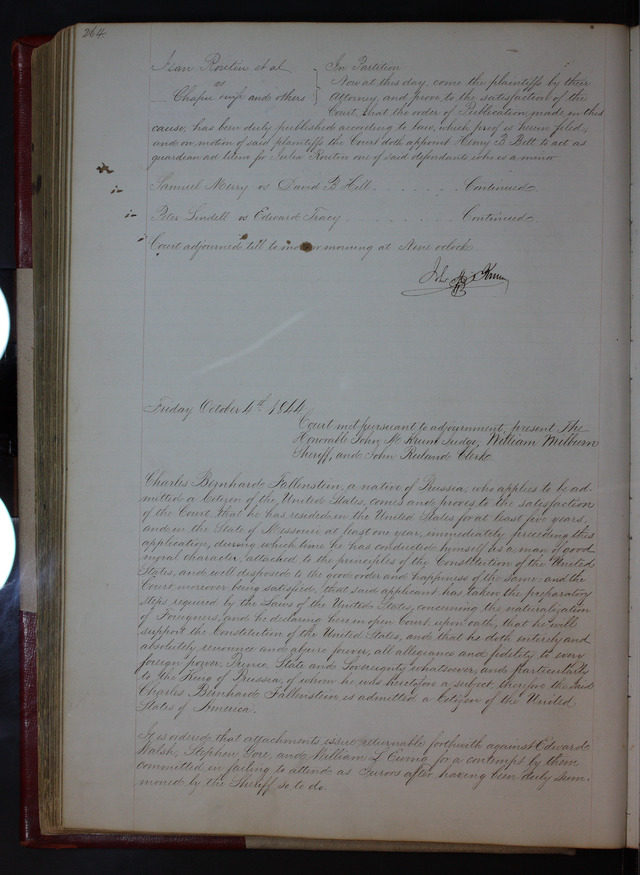 264
Jean Routin et al } In Partition
vs } Now at this day, come the plaintiffs by their
Chapin and others } Attorney, and prove to the satisfaction of the
Court, that the order of Publication made in this
cause, has been duly published according to law, which proof is herein filed,
and on motion of said plaintiffs the Court doth appoint Henry B Belt to act as
guardian ad litem for Julia Routin one of said defendants who is a minor
Samuel Merry vs David B Hill . . . . . . . . Continued
Peter Lindell vs Edward Tracy . . . . . . . . . . Continued
Court adjourned till to morrow morning at Nine oclock.
Jno. M Krum
Friday October 4th 1844
Court met pursuant to adjournment, present The
Honorable John M Krum Judge, William Milburn
Sheriff, and John Ruland Clerk
Charles Bernhard Fallenstein, a native of Prussia, who applies to be ad-
mitted a Citizen of the United States, comes and proves to the satisfaction
of the Court that he has resided in the United States for at least five years,
and in the State of Missouri at least one year, immediately preceding this
application, during which time he has conducted himself as a man of good
moral character, attached to the principles of the Constitution of the United
States, and well disposed to the good order and happiness of the same: and the
Court moreover being satisfied, that said applicant has taken the preparatory
steps required by the Laws of the United States, concerning the naturalization
of Foreigners, and he declaring here in open Court, upon oath, that he will
support the Constitution of the United States, and that he doth entirely and
absolutely renounce and abjure forever, all allegiance and fidelity to every
foreign power, Prince, State and Sovereignty whatsoever, and particularly
to the King of Prussia, of whom he was heretofore a subject, therefore the said
Charles Bernhard Fallenstein is admitted a Citizen of the United
States of America.
It is ordered that attachments issue, returnable forthwith against Edward
Walsh, Stephen Gore, and William L Ewing for a contempt by them
committed in failing to attend as Jurors after having been duly sum-
moned by the Sheriff so to do.